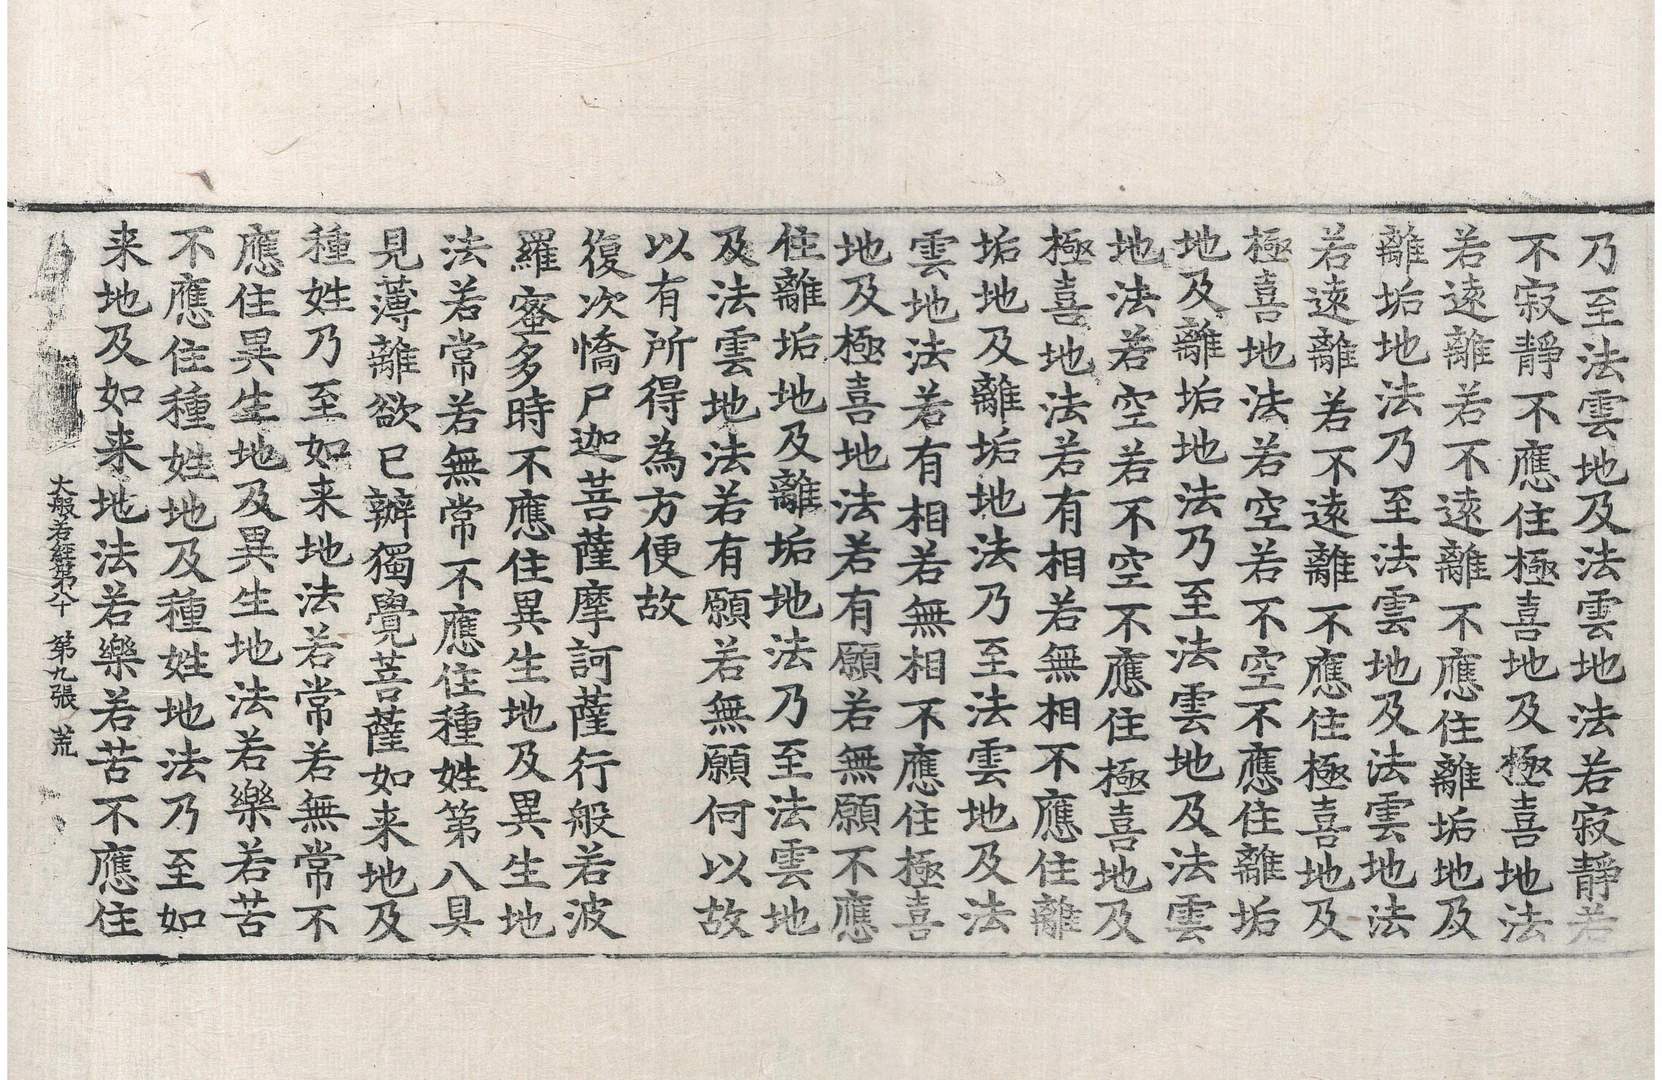 乃至法雲地及法雲地法若寂靜若
不寂靜不應住極喜地及極喜地法
若遠離若不遠離不應住離垢地及
離垢地法乃至法雲地及法雲地法
若遠離若不遠離不應住極喜地及
極喜地法若空若不空不應住離垢
地及離垢地法乃至法雲地及法雲
地法若空若不空不應住極喜地及
極喜地法若有相若無相不應住離
垢地及離垢地法乃至法雲地及法
雲地法若有相若無相不應住極喜
地及極喜地法若有願若無願不應
住離垢地及離垢地法乃至法雲地
及法雲地法若有願若無願何以故
以有所得為方便故
復次憍尸迦菩薩摩訶薩行般若波
羅蜜多時不應住異生地及異生地
法若常若無常不應住種姓第八具
見薄離欲已辦獨覺菩薩如来地及
種姓乃至如来地法若常若無常不
應住異生地及異生地法若樂若苦
不應住種姓地及種姓地法乃至如
来地及如来地法若樂若苦不應住
大般若經第八十 第九張 荒